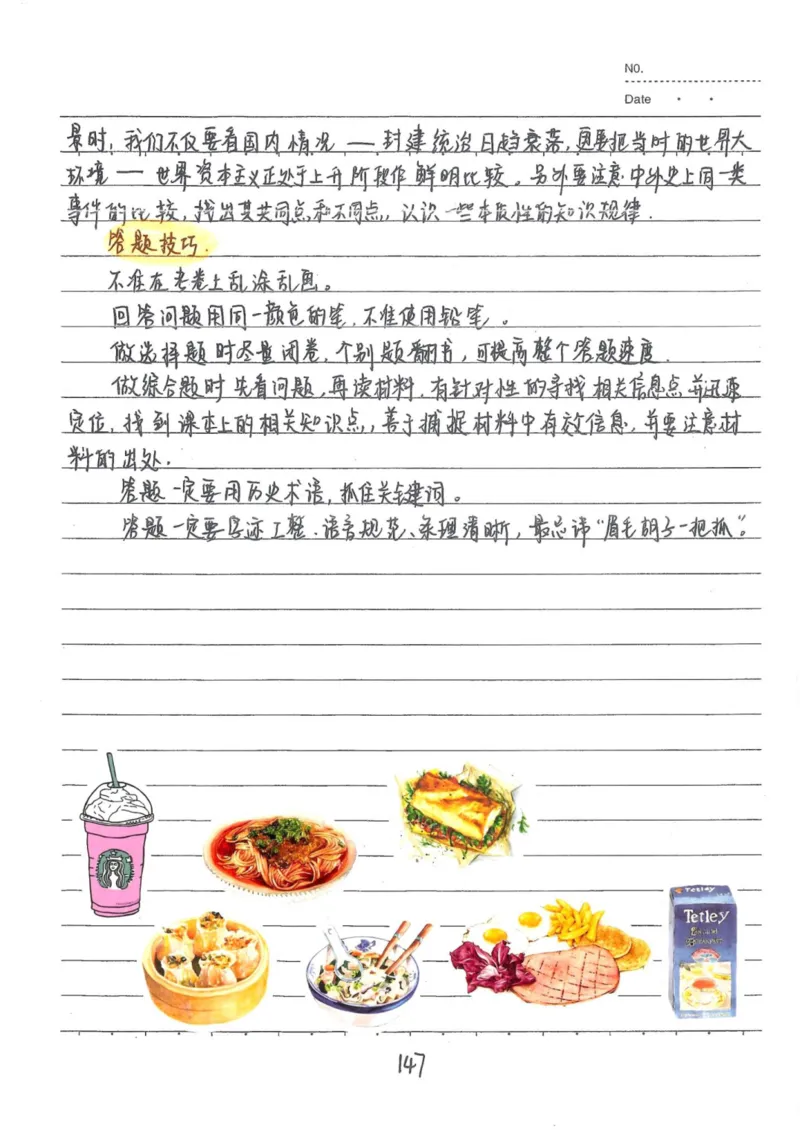 No.
Date
景时，我们不仅要看国内情况——封建统治日趋衰落，更要把当时的世界大
环境——世界资本主义正处于上升阶段作鲜明比较。另外要注意中外史上同一类
事件的比较，找出其共同点和不同点，认识一些本质性的知识规律.
答题技巧.
不准在考卷上乱涂乱画。
回答问题用同一颜色的笔，不准使用铅笔。
做选择题时尽量闭卷，个别题翻书，可提高整个答题速度.
做综合题时先看问题，再读材料，有针对性的寻找相关信息点并迅速
定位，找到课本上的相关知识点，善于捕捉材料中有效信息，并要注意材
料的出处.
答题一定要用历史术语，抓住关键词。
答题一定要字迹工整、语言规范、条理清晰，最忌讳“眉毛胡子一把抓”。
Tetley
Tetley
ENGLISH
BREAKFAST
147